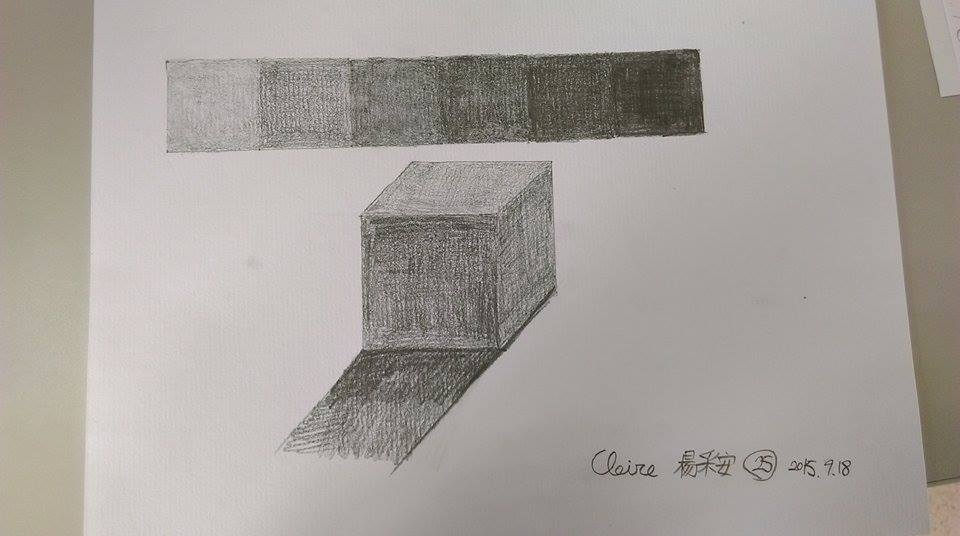 Claire 楊采安 25 2015.9.18